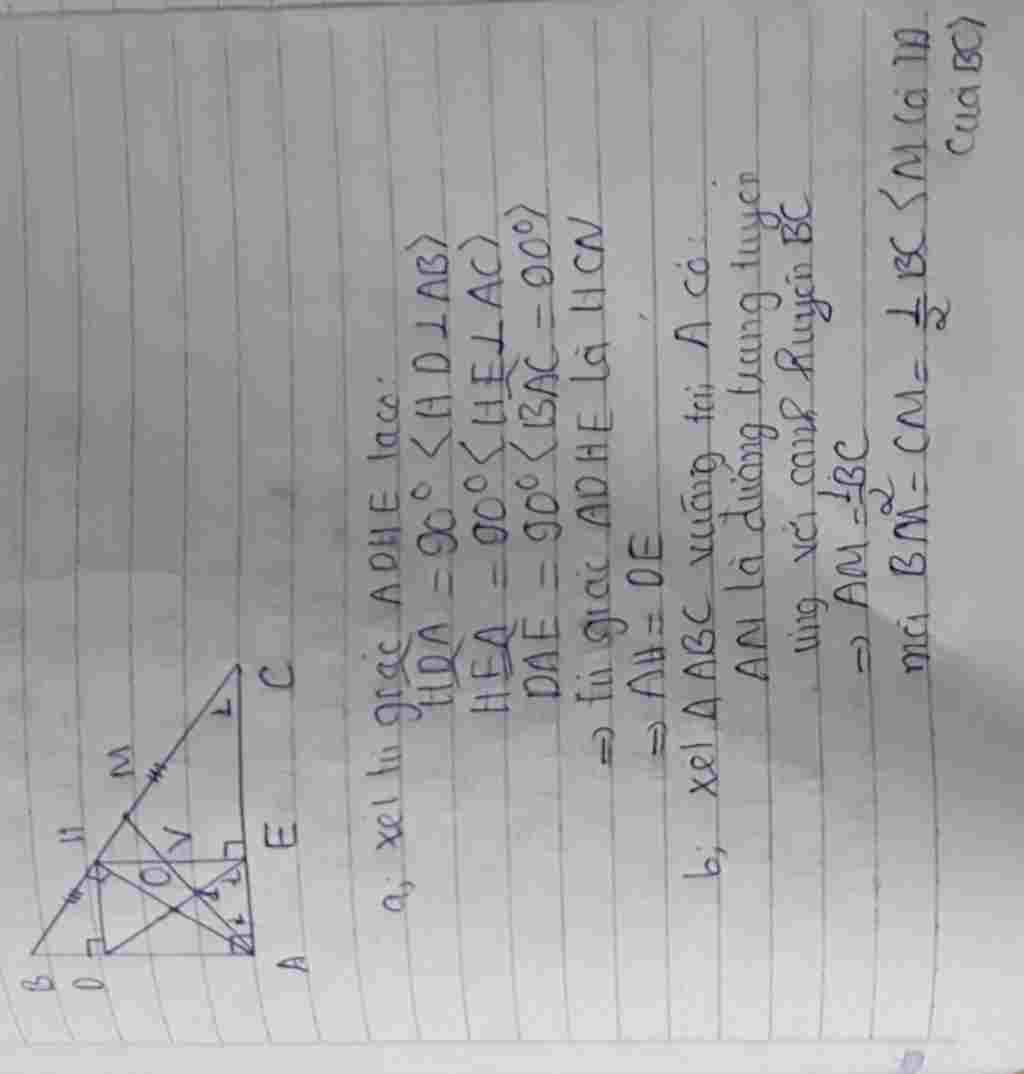 B
D
H
M
O
V
I
A
E
C
a; xét tứ giác ADHE taco:
HDA = 90° <HD⊥AB>
HEA = 90° <HE⊥AC>
DAE = 90° <BAC = 90°>
=> tứ giác ADHE là HCN
=> AH = DE
b; xét Δ ABC vuông tại A có:
AM là đường trung tuyến
ứng với cạnh huyền BC
=> AM = 1/2 BC
mà BM = CM = 1/2 BC <M là TĐ
của BC>